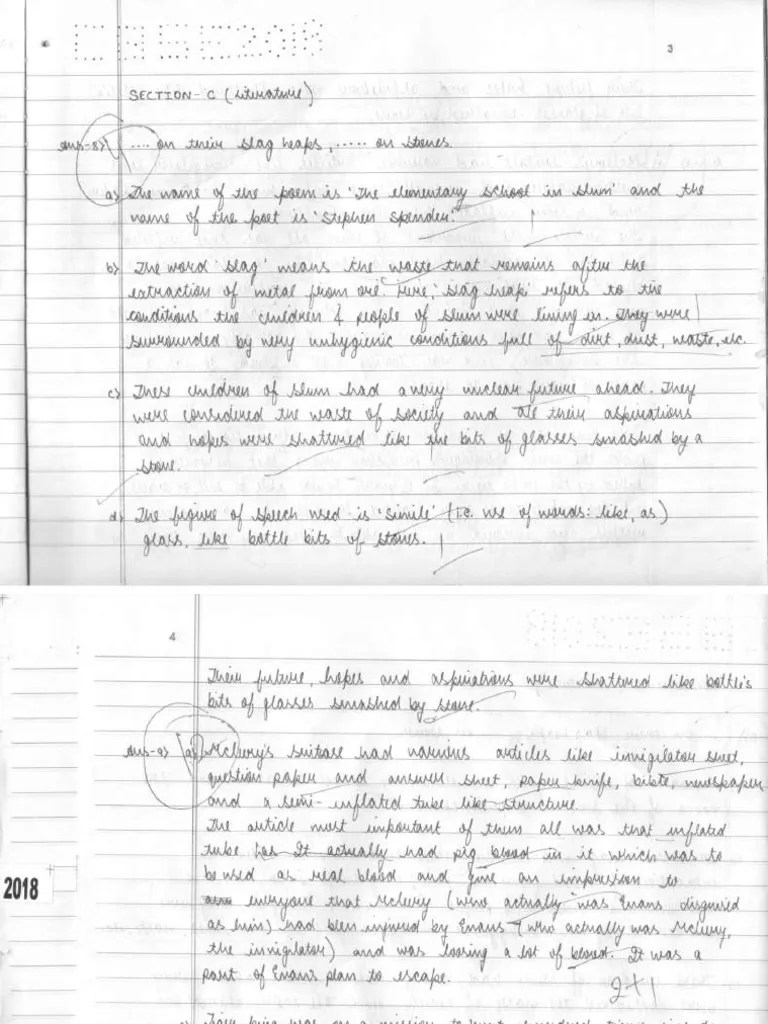 CBSE2018
3
SECTION-C (Literature)
Ans-8) .... on their slag heaps, ..... on stones.
a) The name of the poem is 'The elementary school in slum' and the
name of the poet is 'Stephen Spender.'
b) The word 'slag' means the waste that remains after the
extraction of metal from ore. Here, 'slag heap' refers to the
conditions the children & people of slum were living in. They were
surrounded by very unhygienic conditions full of dirt, dust, waste, etc.
c) These children of slum had a very unclear future ahead. They
were considered the waste of society and all their aspirations
and hopes were shattered like the bits of glasses smashed by a
stone.
d) The figure of speech used is 'simile' (i.e. use of words: like, as)
glass, like bottle bits of stones.
4
Their future, hopes and aspirations were shattered like bottle's
bits of glasses smashed by stone.
Ans-9) a) McLeery's suitcase had various articles like invigilator sheet,
question paper and answer sheet, paper knife, bible, newspaper
and a semi-inflated tube like structure.
The article most important of them all was that inflated
tube as It actually had pig blood in it which was to
be used as real blood and give an impression to
everyone that McLeery (who actually was Evans disguised
as him) had been injured by Evans (who actually was McLeery,
the invigilator) and was loosing a lot of blood. It was a
part of Evan's plan to escape.
2+1
2018